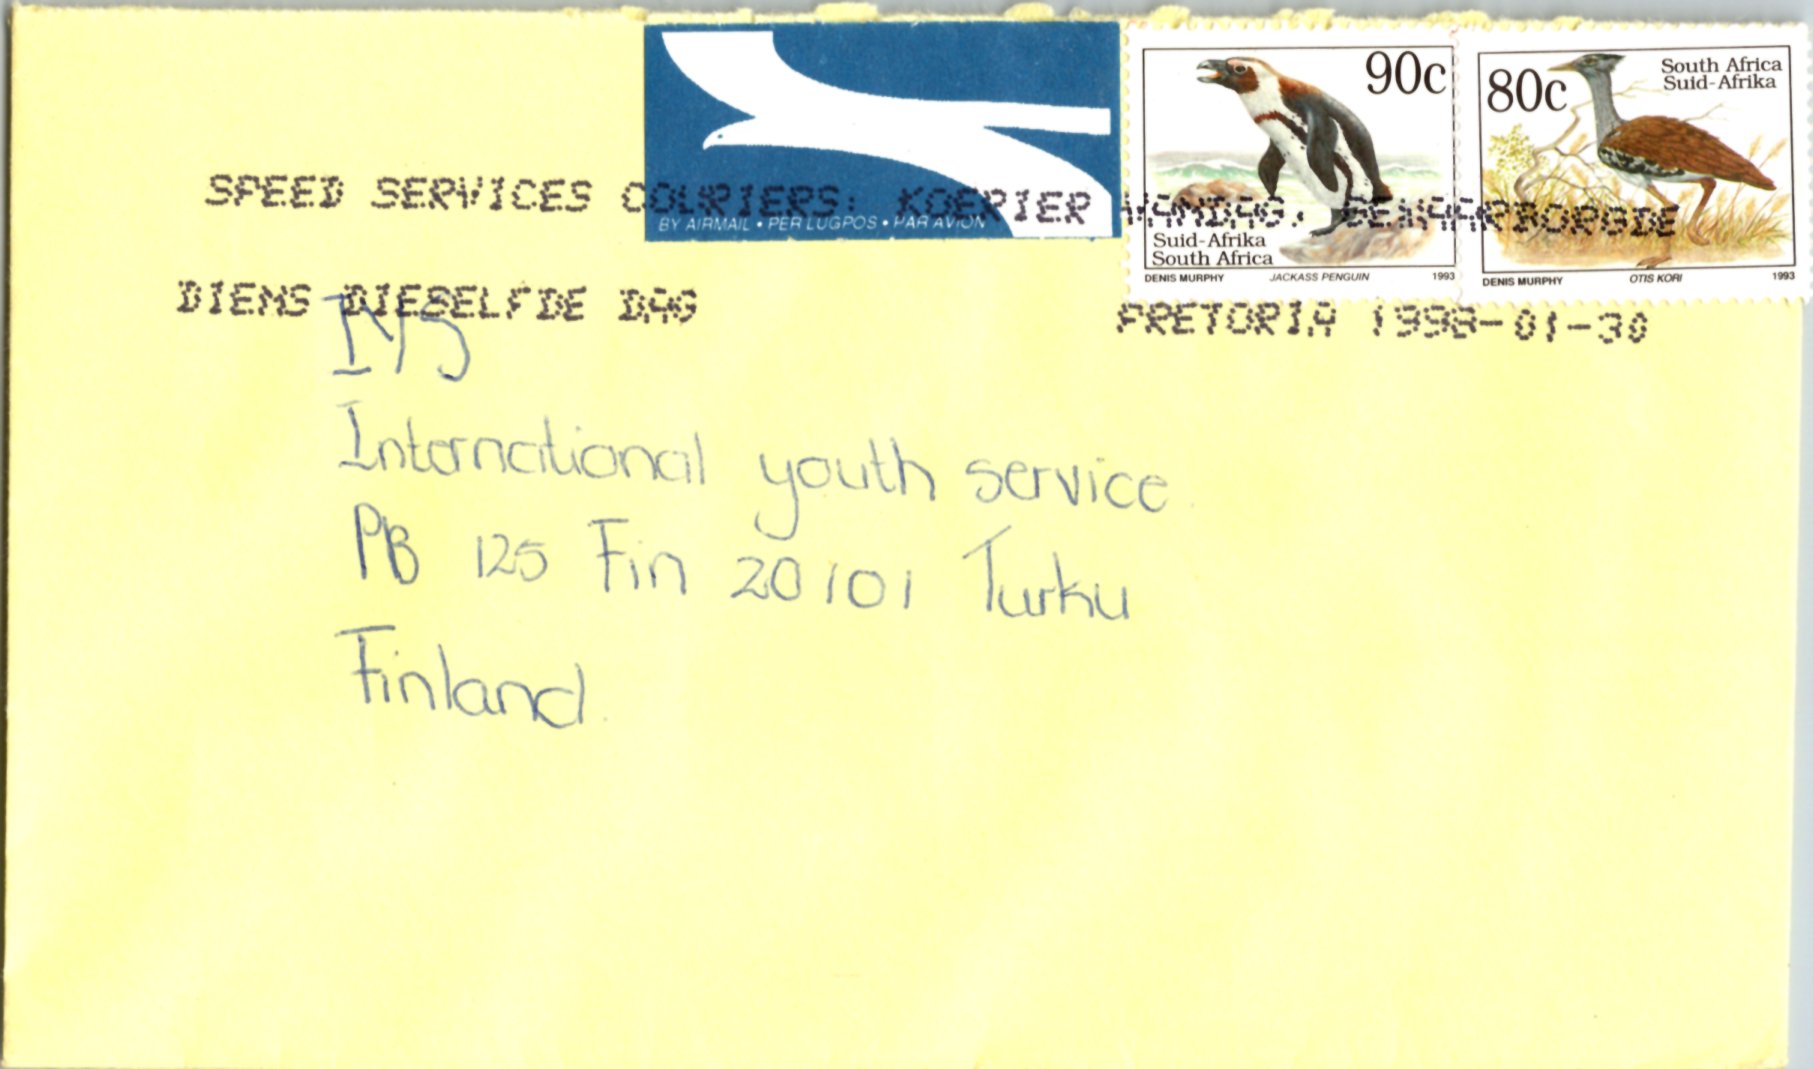 90c
Suid-Afrika
South Africa
DENIS MURPHY JACKASS PENGUIN 1993
80c
South Africa
Suid-Afrika
DENIS MURPHY OTIS KORI 1993
BY AIRMAIL • PER LUGPOS • PAR AVION
SPEED SERVICES COURIERS: KOERIER VANDAG, GEWAARBORGDE
DIENS DIESELFDE DAG
PRETORIA 1998-01-30
IYS
International youth service
PB 125 Fin 20101 Turku
Finland.